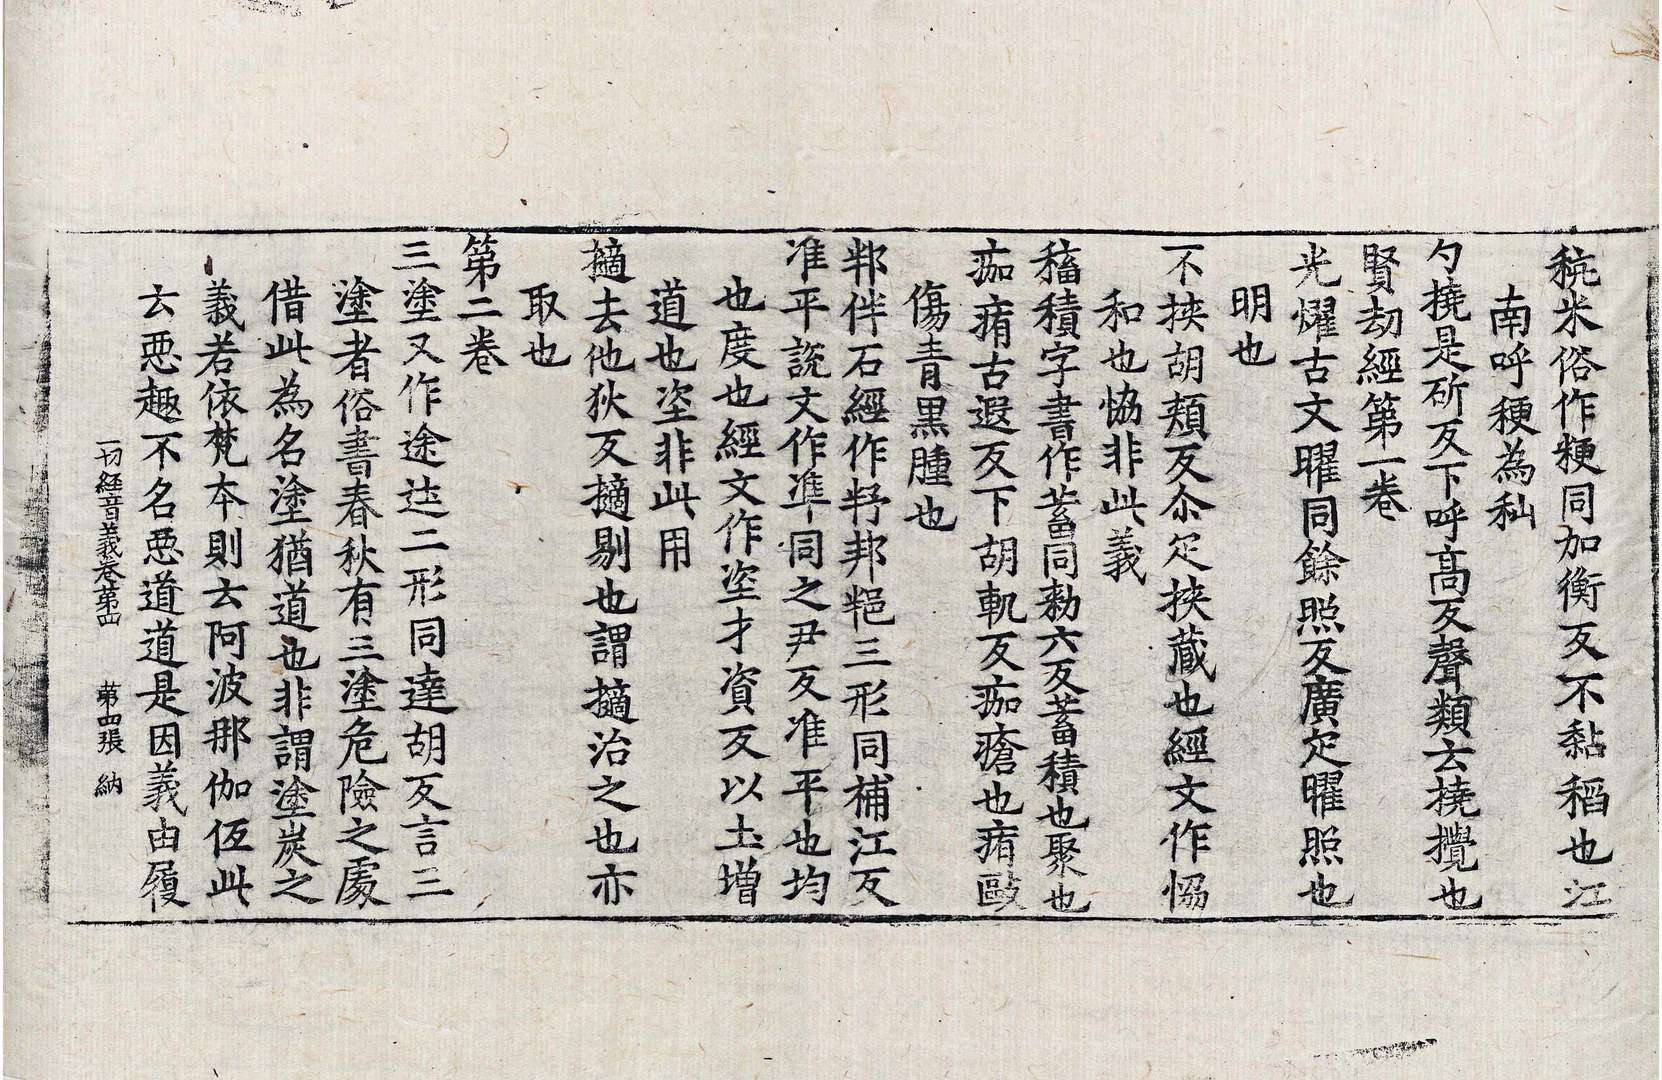 秔米俗作粳同加衡反不黏稻也江
南呼稉為秈
勺撓是斫反下呼高反聲類云撓攪也
賢劫經第一卷
光燿古文曜同餘照反廣疋曜照也
明也
不挾胡頰反尒疋挾藏也經文作恊
和也恊非此義
稸積字書作蓄同勑六反蓄積也聚也
痂痏古遐反下胡軌反痂瘡也痏敺
傷青黑腫也
邦伴石經作𨙸邦𨛜三形同補江反
准平說文作準同之尹反准平也均
也度也經文作垐才資反以土增
道也垐非此用
擿去他狄反擿剔也謂擿治之也亦
取也
第二卷
三塗又作途迲二形同達胡反言三
塗者俗書春秋有三塗危險之處
借此為名塗猶道也非謂塗炭之
義若依梵本則云阿波那伽伍此
云悪趣不名悪道道是因義由履
一切經音義卷第四 第四張 納